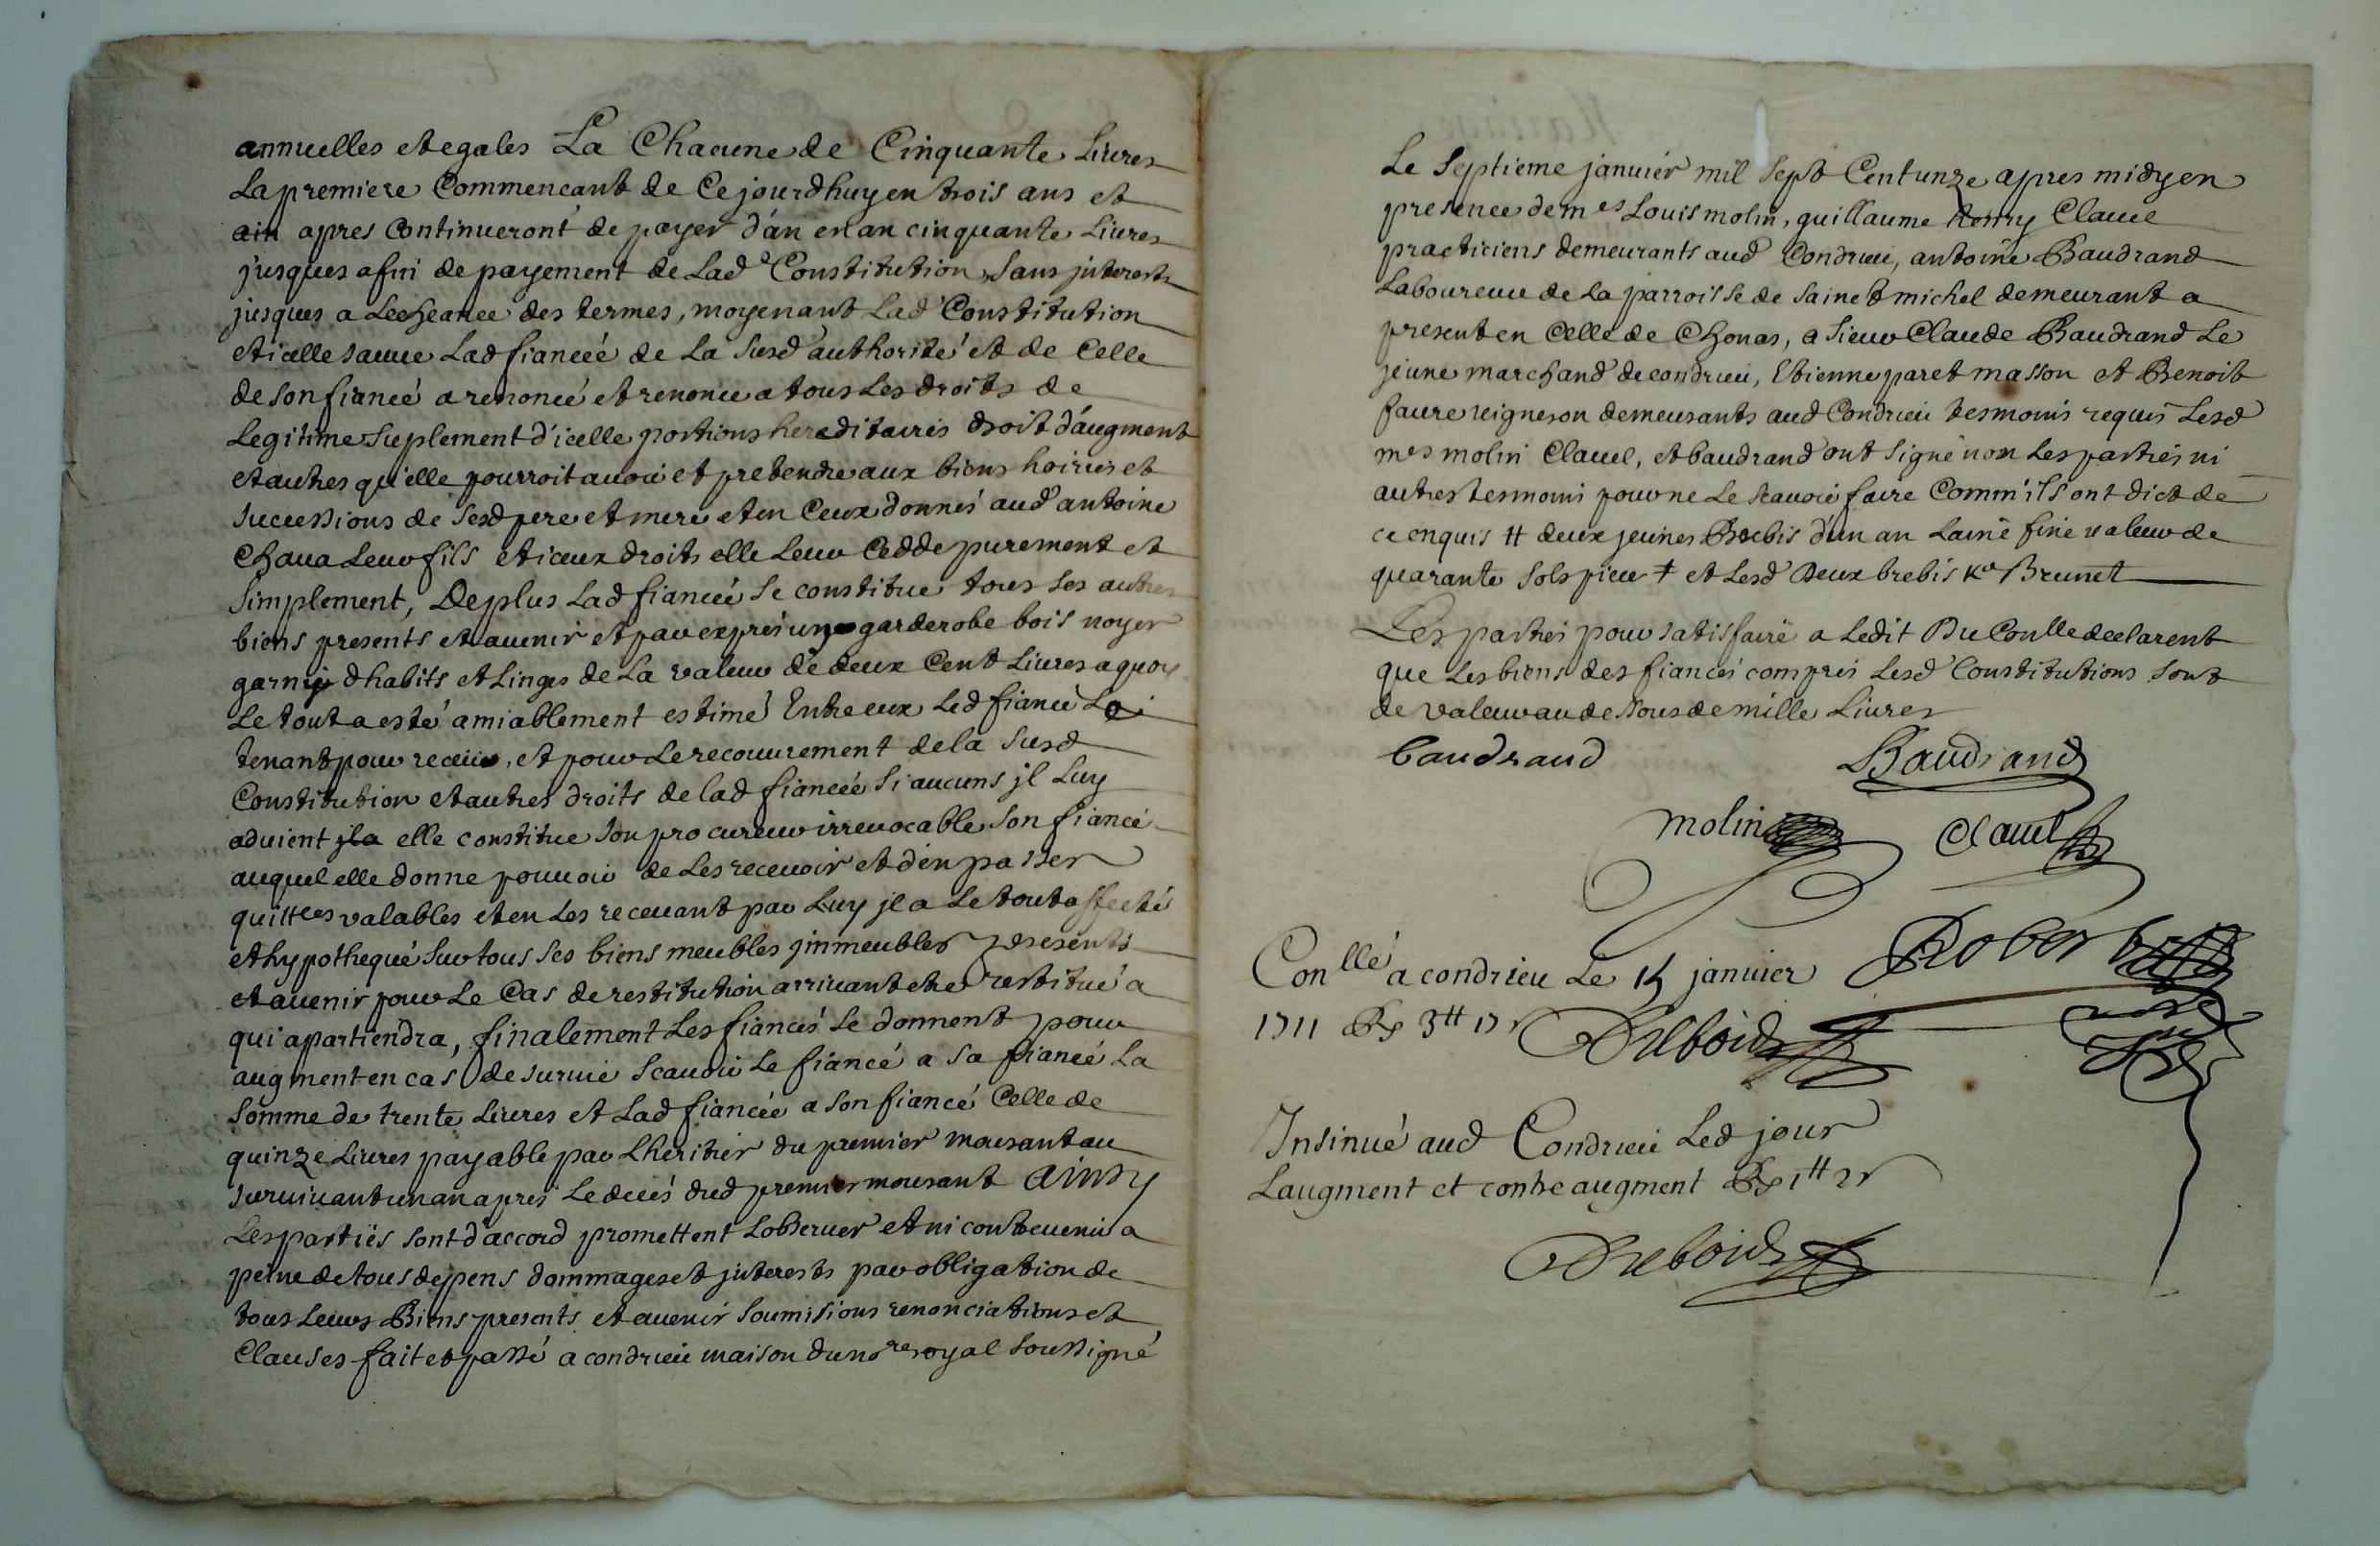 annuelles et egales La Chacune de Cinquante Livres
La premiere Commencant de Cejourdhuy en trois ans et
ain apres Continueront de payer d'an en an cinquante Livres
jusques a fin de payement de Lad Constitution Sans jnterests
jusques a Lecheance des termes, moyenant Lad Constitution
et icelle Lad fianceé de La Susd authorité et de Celle
de son fiancé a renoncé et renonce a tous Les droits de
Legitime Suplement d'icelle portions hereditaires droit d'augment
et autres qu'elle pourroit avoir et pretendre aux biens hoiries et
successions de Sesd pere et mere et en Ceux donnés aud antoine
Chava Leur fils et iceux droits elle Leur Cedde purement et
Simplement, De plus Lad fianceé Se constitue tous Ses autres
biens presents et avenir et par exprés une garderobe bois noyer
garnie dhabits et Linges de La valeur de deux Cent Livres a quoy
Le tout a esté amiablement estimé Entre eux Led fiancé
tenant pour receu, et pour Le recouvrement de la Susd
Constitution et autres droits de lad fianceé Si aucuns jl Luy
advient jla elle constitue Son procureur irrevocable Son fiancé
auquel elle donne pouvoir de Les recevoir et d'en passer
quittces valables et en Les recevant par Luy jl a Le tout affecté
et hypothequé Sur tous Ses biens meubles jmmeubles presents
et avenir pour Le Cas de restitution arrivant etre restitué a
qui apartiendra, finalement Les fiancés Se donnent pour
augment en cas de survie Scavoir Le fiancé a Sa fianceé La
Somme de trente Livres et Lad fiancée a Son fiancé Celle de
quinze Livres payable par Lheritier du premier mourant au
survivant un an apres Le decés dud premier mourant Ainsy
Les partiës Sont d'accord promettent Lobserver et ni contrevenir a
peine de tous depens dommages et jnterests par obligation de
tous Leurs Biens presents et avenir Soumisions renonciations et
Clauses fait et passé a condrieu maison du nore royal Soussigné
Le Septieme janvier mil Sept Cent unze apres midy en
presence de mes Louis molin, guillaume henry Clavel
practiciens demeurants aud Condrieu, antoine Baudrand
Laboureur de La parroisse de Sainct michel demeurant a
present en Celle de Chonas, a Sieur Claude Baudrand Le
jeune marchand de condrieu, Etienne paret masson et Benoit
faure vigneron demeurants aud Condrieu tesmoins requis Lesd
mes molin Clavel, et baudrand ont Signé non Les parties ni
autres tesmoins pour ne Le Scavoir faire Comm'ils ont dict de
ce enquis # deux jeunes Brebis d'un an Laine fine valeur de
quarante Sols piece ‡ et Lesd Deux brebis Brunet
Les parties pour satisfaire a Ledit Du Conlle declarent
que Les biens des fiancés compris Lesd Constitutions Sont
de valeur au dessous de mille Livres
baudrand Baudrand
molin Clavel
Conllé a condrieu Le 15 janvier Robert
1711 Rx 3tt 17s Duboid
Insinué aud Condrieu Led jour
Laugment et contre augment Rx 1tt 2s
Duboid